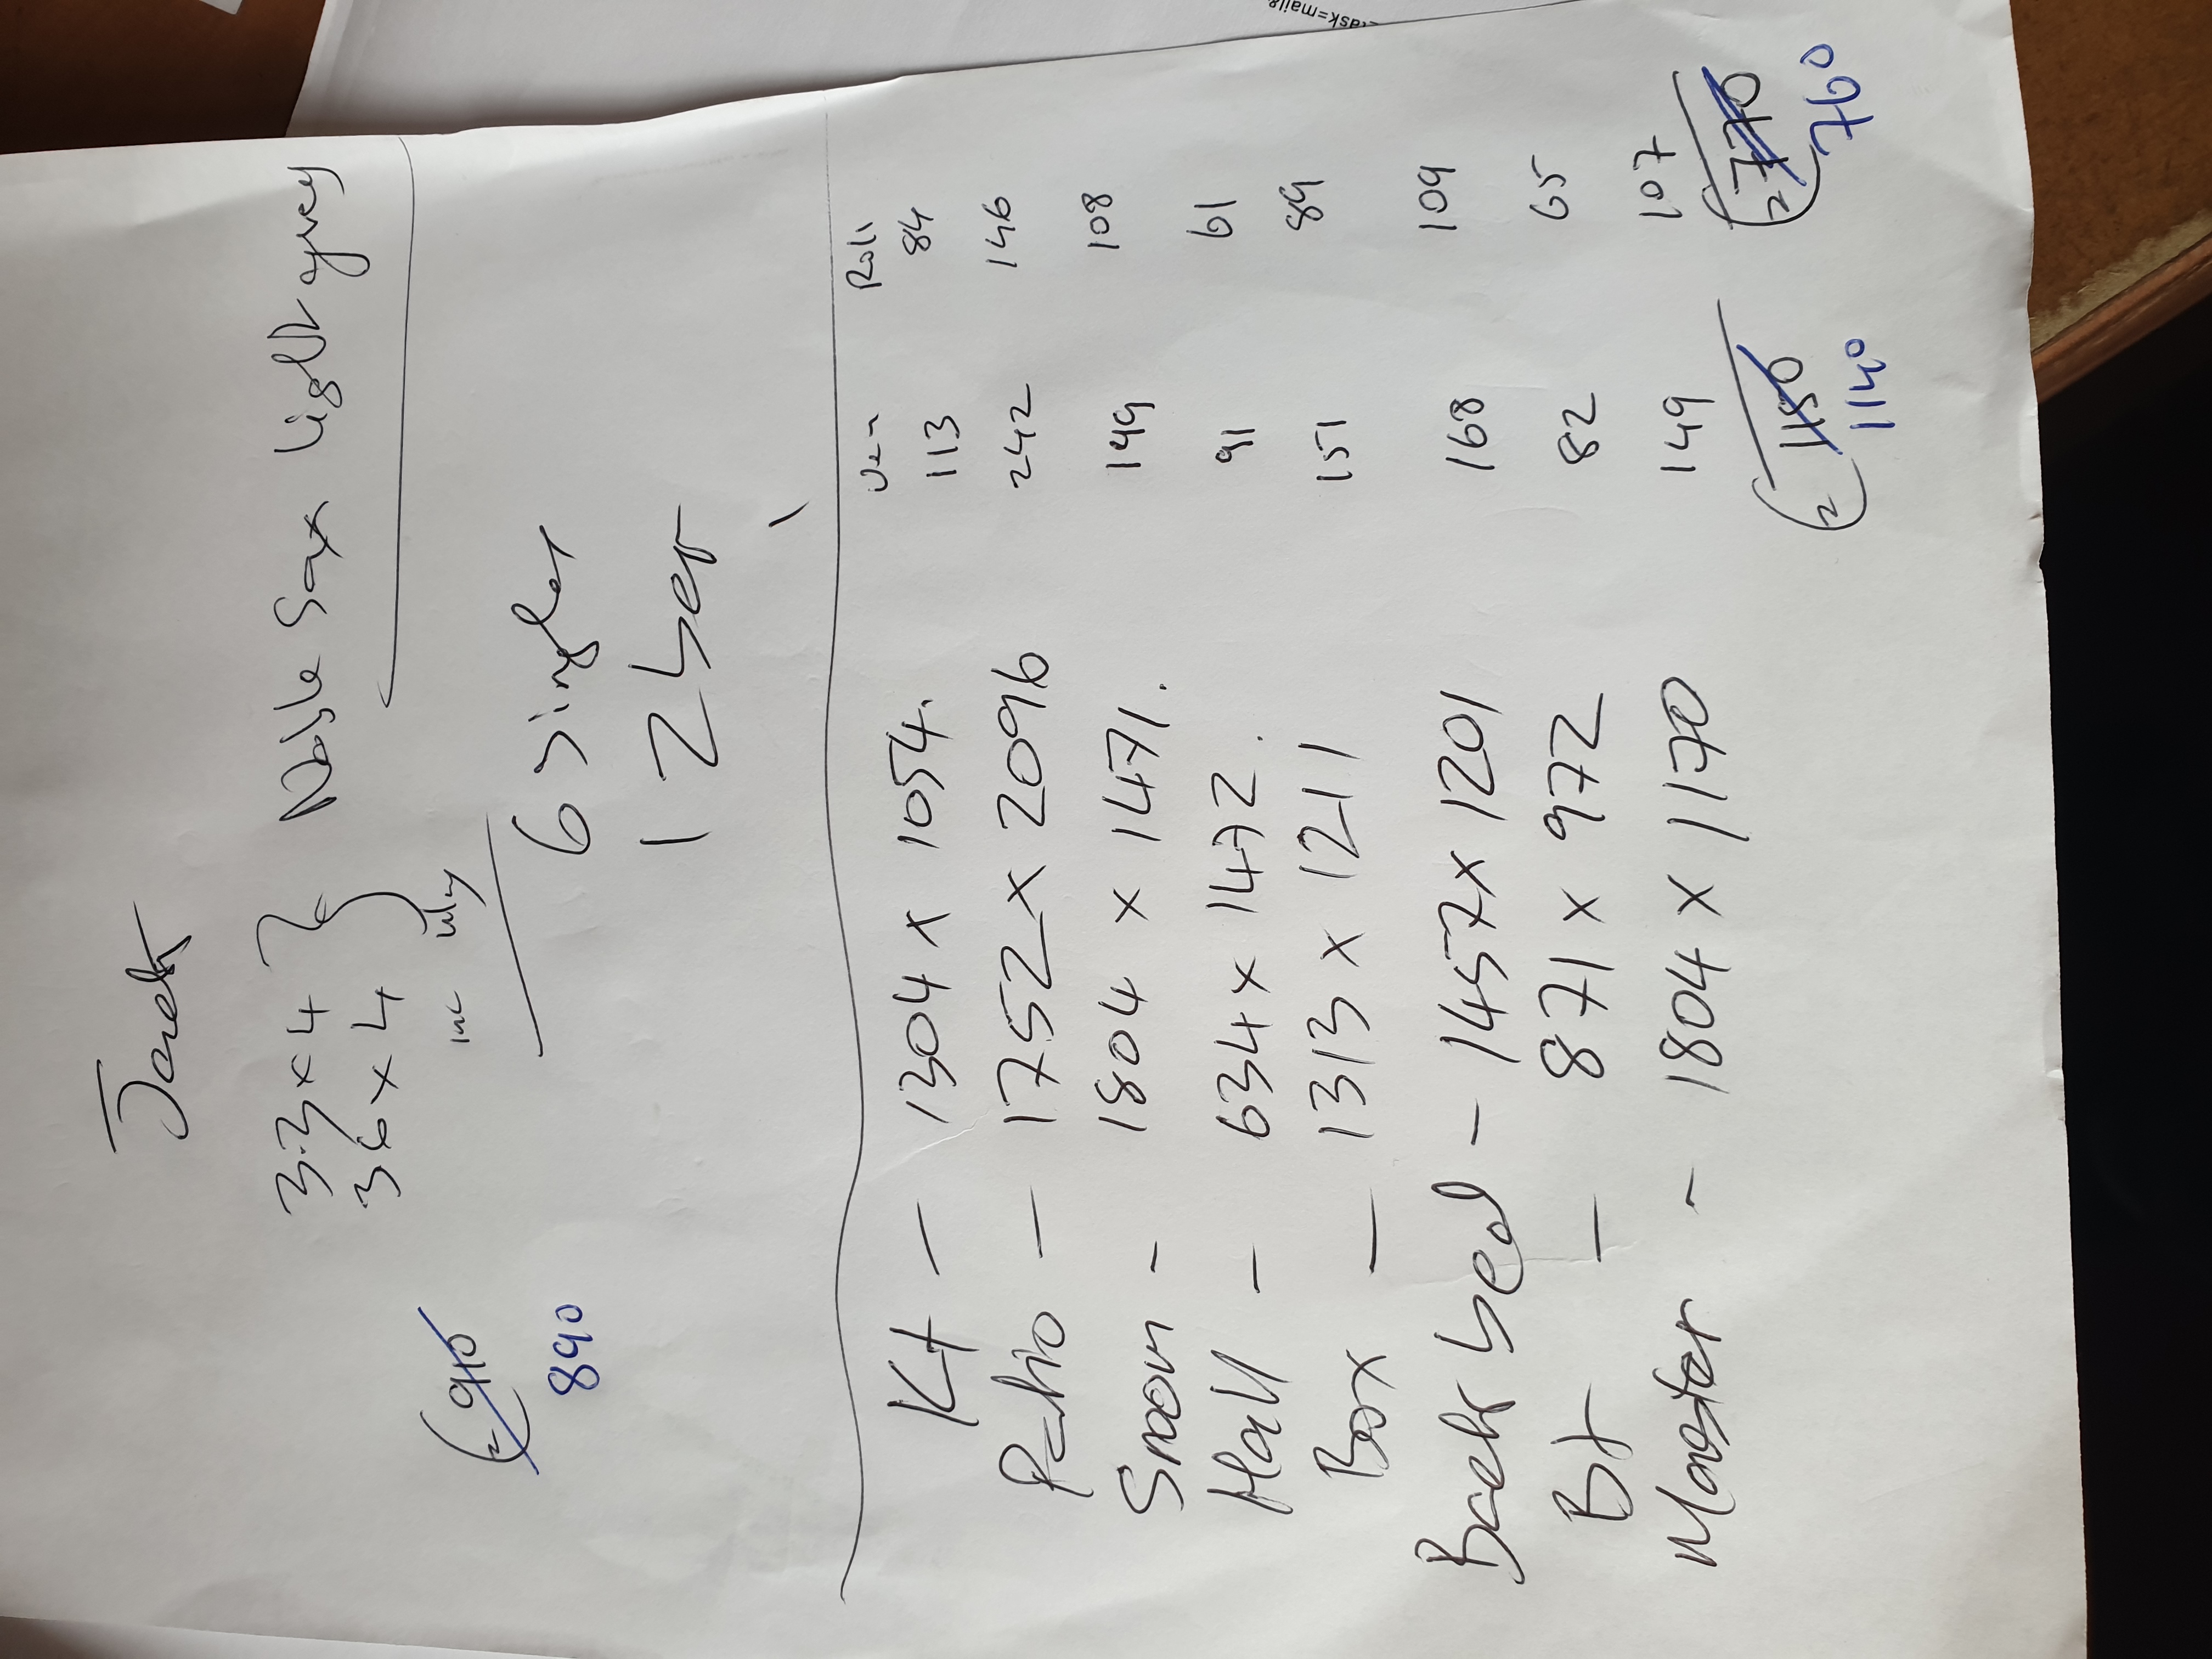 Janet
3.3 x 4 } Noble Sax light grey
3.6 x 4
inc
£910
890
6 singles
1 2 Ser
Ven Roll
Kt - 1304 x 1054. 113 84
Patio - 1752 x 2096 242 146
Sroom - 1804 x 1471. 149 108
Hall - 634 x 1472. 91 61
Box - 1313 x 1211 151 89
Back bed - 1457 x 1201 168 109
Bt - 871 x 972 82 65
Master - 1804 x 1170 149 107
£1150 £770
1140 760
task=mail&